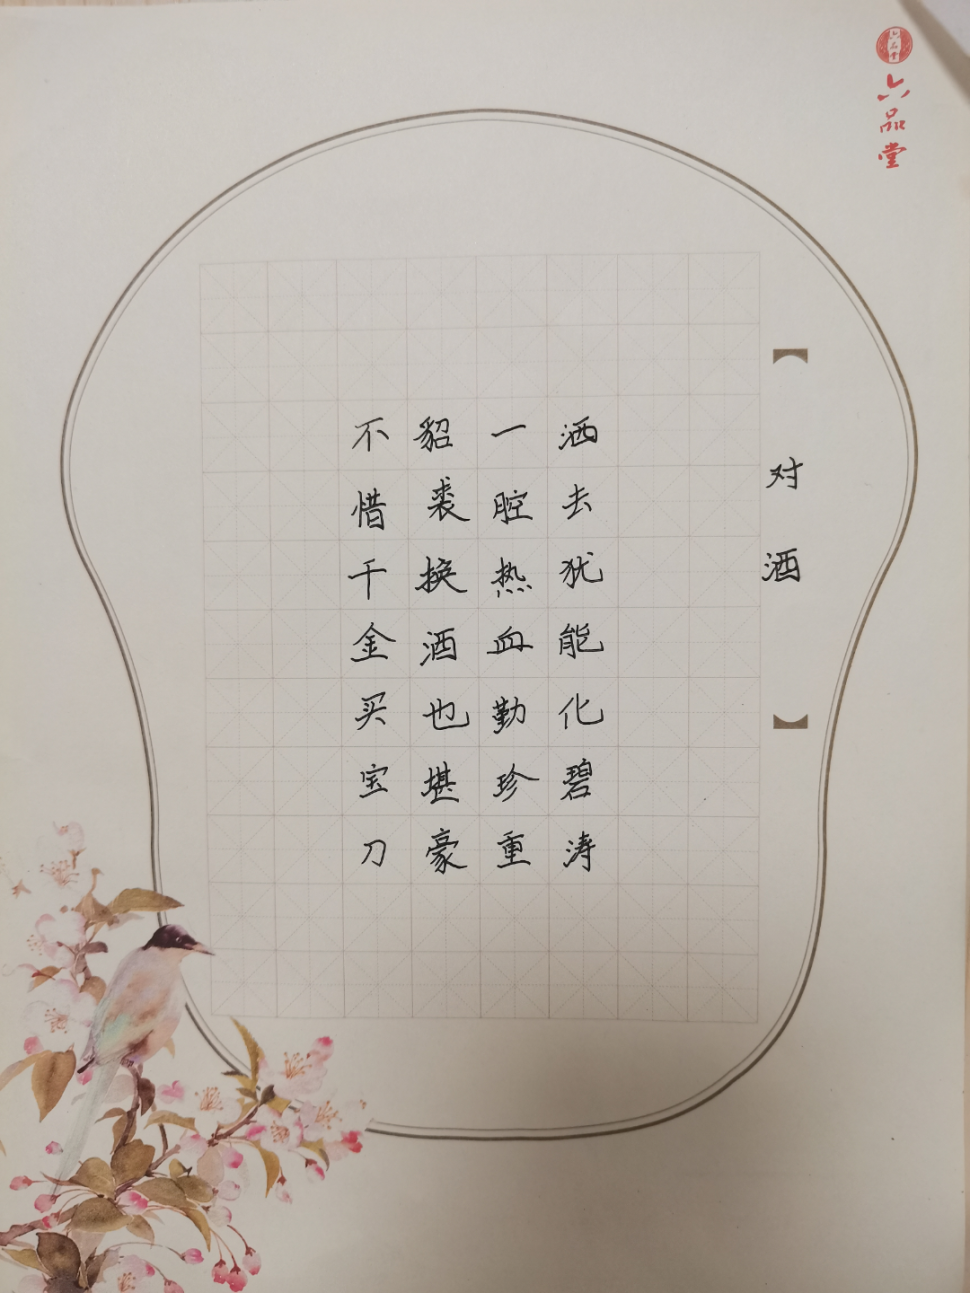 六品堂
六品堂
【对酒】
不惜千金买宝刀
貂裘换酒也堪豪
一腔热血勤珍重
洒去犹能化碧涛